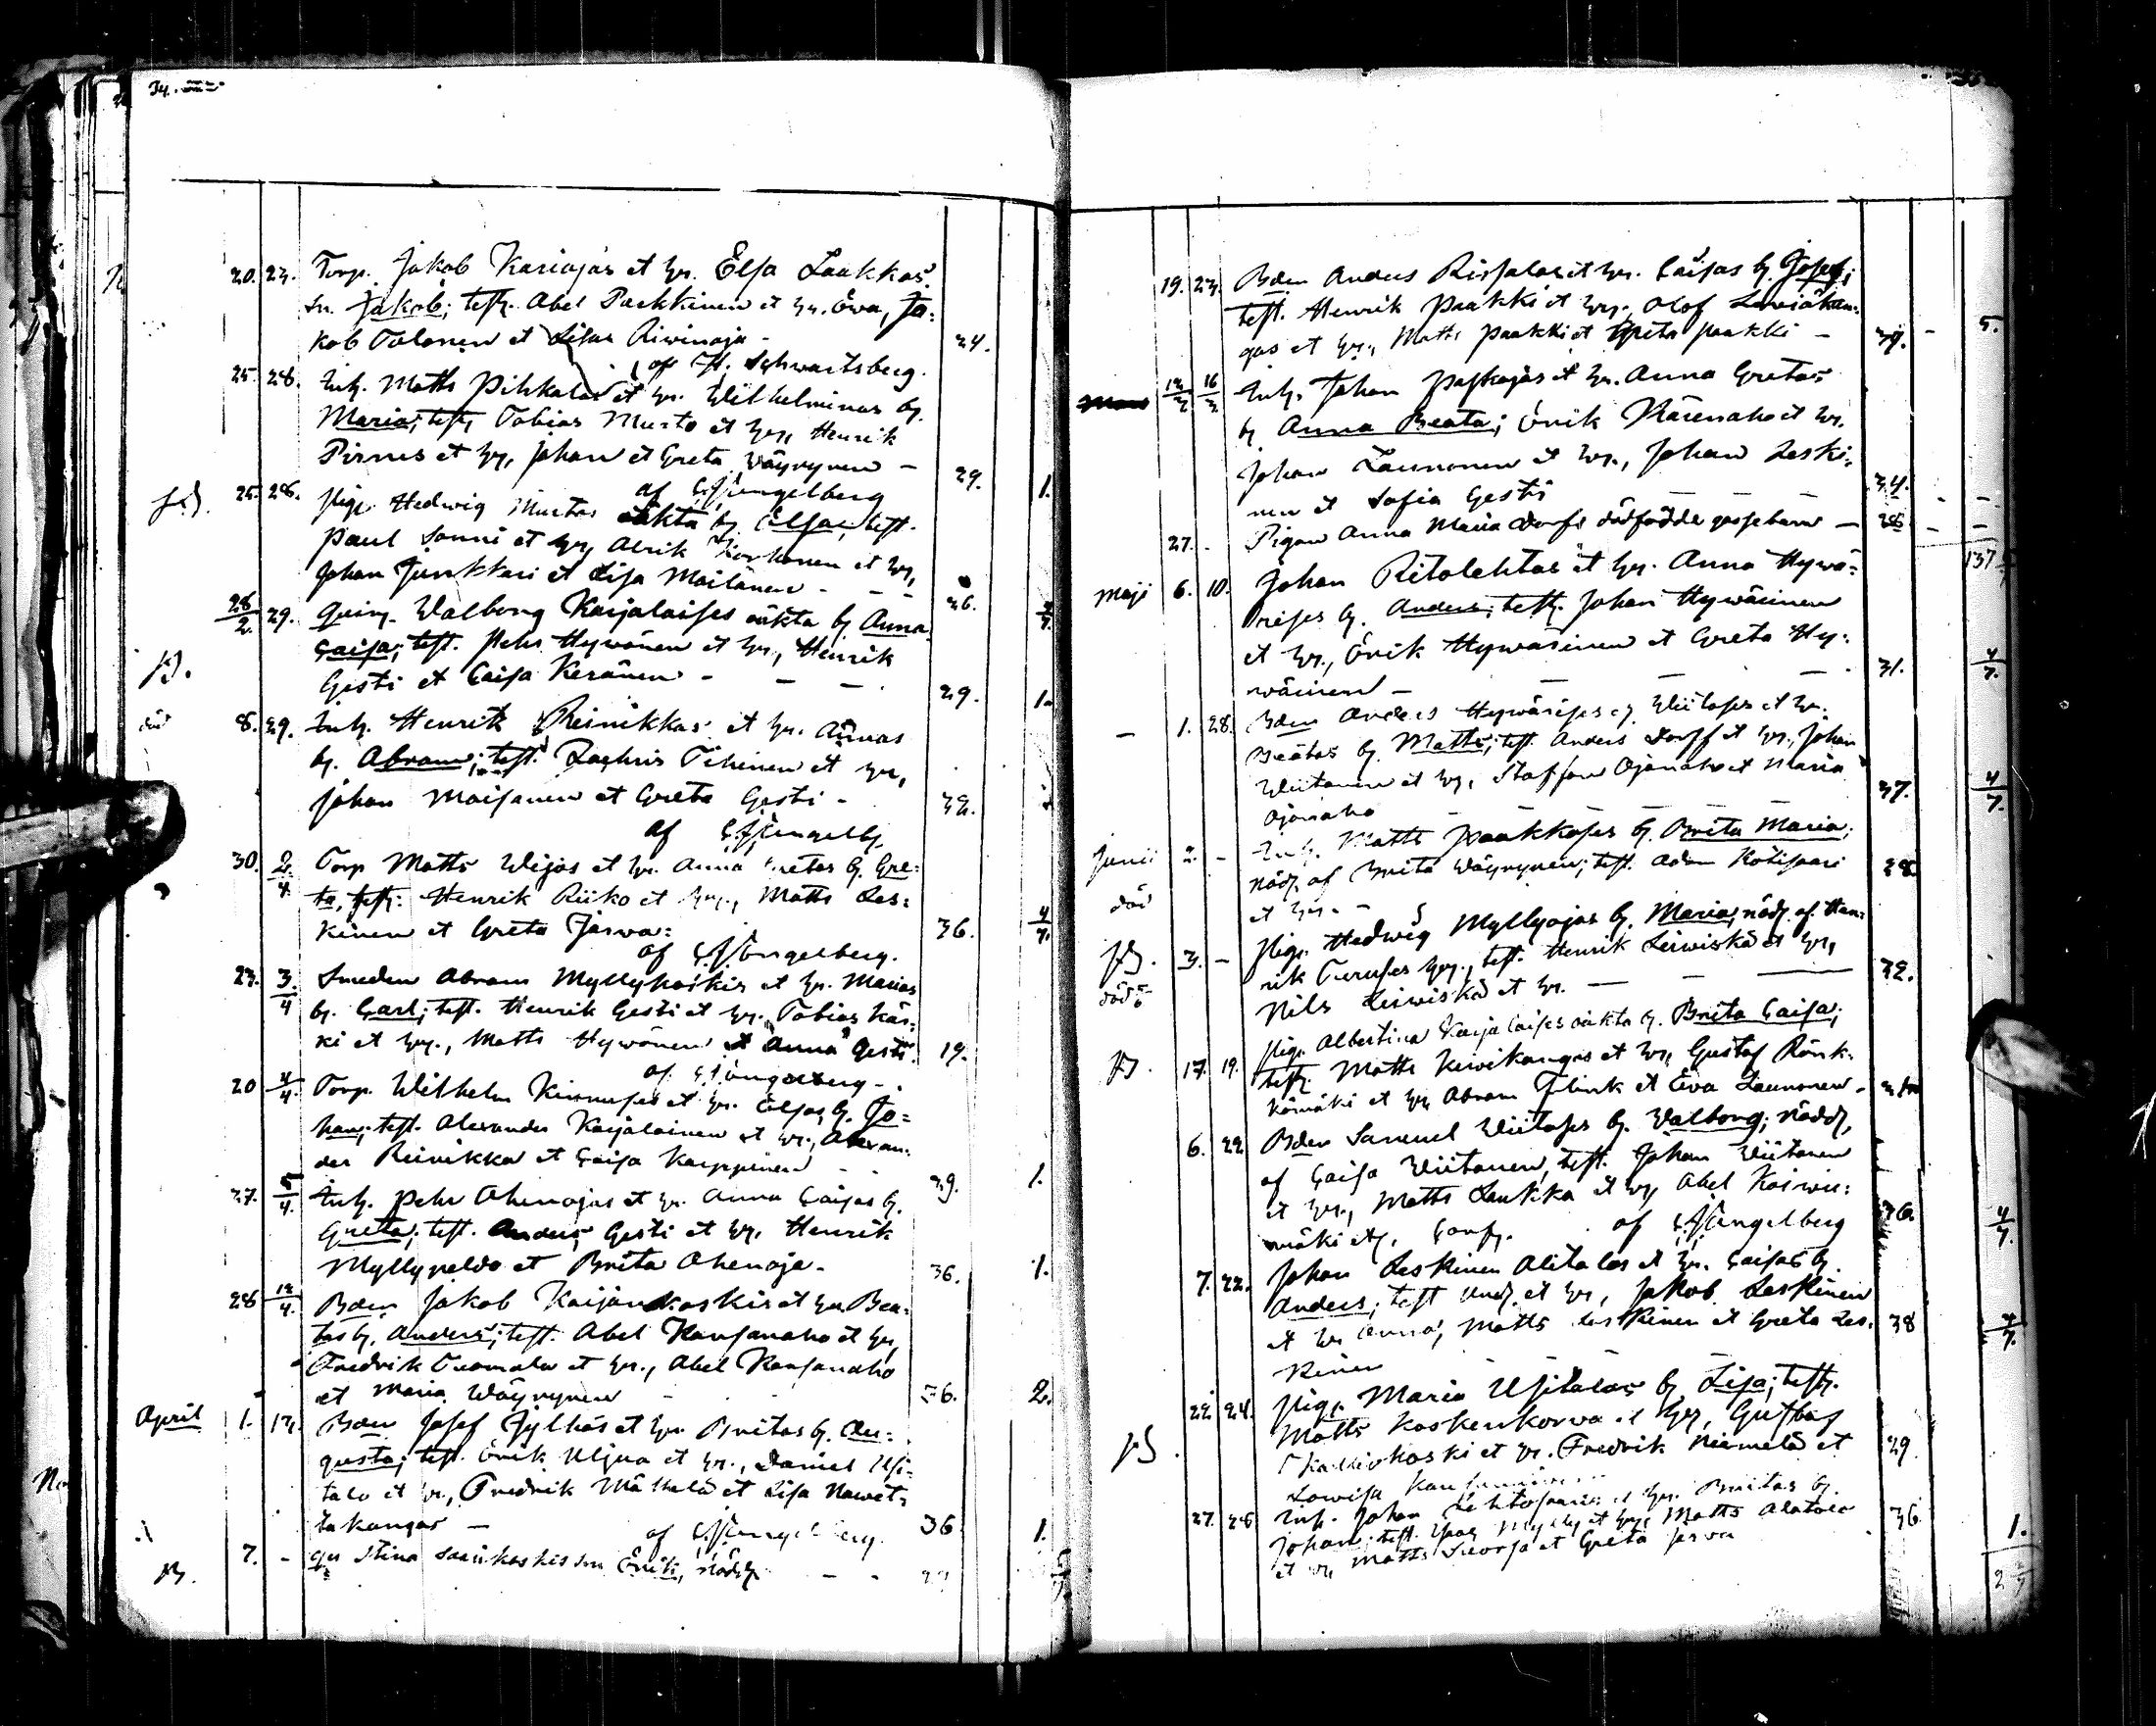 34.
20. 23. Torp. Jakob Kariajas et hr. Elsa Laakkas
sn. Jakob; test. Abel Parkkinen et hr. Ewa, Ja:
kob Tolonen et Lisas Riwinoja - 24.
af H. Schwartsberg.
25. 28. Inh. Matts Pihkalas et hr. Wilhelminas b.
Maria; test. Tobias Murto et hr, Henrik
Pirnes et hr, Johan et Greta Wäyrynen - 29. 1.
af Engelberg
25. 28. Pig. Hedwig Murtos oäkta b. Elsa; test.
Paul Sonni et hr, Alrik Korhonen et hr,
Johan Junkkari et Lisa Moilanen - - - 26.
28/2 29. Quin. Walborg Karjalaises oäkta b. Anna
Caisa; test. Pehr Hywönen et hr, Henrik
Gesti et Caisa Keränen - - - 29. 1.
död 8. 29. Inh. Henrik Reinikkas et hr. Annas
b. Abram; test. Zachris Tihinen et hr,
Johan Moisanen et Greta Gesti - 32.
af Engelb.
30. 2/4 Torp Matts Wejas et hr. Anna Gretas b. Gre:
ta, test: Henrik Riiko et hr., Matts Les:
kinen et Greta Järwa: 36. 4/7.
af Engelberg.
23. 3/4 Smeden Abram Myllykoskis et hr. Marias
b. Carl; test. Henrik Gesti et hr. Tobias Kär:
ki et hr., Matts Hywönen et Anna Gesti. 19.
af Engelberg -
20 4/4. Torp. Wilhelm Kinnuses et hr. Elsas b. Jo:
han; test. Alexander Karjalainen et hr., Alexan:
der Reinikka et Caisa Karppinen - - 29. 1.
27. 5/4. Inh. Pehr Ahenojas et hr. Anna Caisas b.
Greta; test. Anders Gesti et hr, Henrik
Myllypeldo et Brita Ahenoja - 36. 1.
28 12/4. Bden Jakob Kaijankoskis et hr Bea:
tas b. Anders; test. Abel Kansanaho et hr,
Fredrik Tuomala et hr., Abel Kansanaho
et Maria Wäyrynen - 36. 2.
April 1. 13. Bden Josef Jylhäs et hr. Britas b. Au:
gusta; test. Erik Uljua et hr., Daniel Usi:
talo et hr, Fredrik Määttälä et Lisa Nawet:
takangas - 36 1.
af Engelberg.
7. - Stina Saarikoskis sn Erik, nöddp - -
19. 23. Bden Anders Rissalas et hr. Caisas b. Josef;
test. Henrik Paakki et hr, Olof Lewiäkan:
gas et hr., Matts Paakki et Greta Paakki - 39. - 5.
13/3 16/3 Inh. Johan Paskojas et hr. Anna Gretas
b Anna Beata; Erik Kärenaho et hr.
Johan Launonen et hr., Johan Leski:
nen et Sofia Gesti 34. - -
27. - Pigan Anna Maria Dorfs dödfödde gossebarn - 28 - -
137
Maji 6. 10. Johan Ritolehtos et hr. Anna Hywä:
rises b. Anders; test. Johan Hywärinen
et hr., Erik Hywärinen et Greta Hy:
wärinen - 31. 4/7.
- 1. 28. Bden Anders Hywärises Wiitases et hr.
Beatas b. Matts; test. Anders Dorff et hr., Johan
Wiitanen et hr, Staffan Ojanaho et Maria
Ojanaho 37. 4/7.
Junii 2. - Inh. Matts Paakkoses b. Brita Maria;
nödd. af Brita Wäyrynen; test. Adam Kotisaari 28
död et hr. -
3. - Pig. Hedwig Myllyojas b. Maria, nödd. af Hen:
rik Turuses hr., test. Henrik Leiwiskä et hr,
död Nils Leiwiskä et hr. - 32.
17. 19. Pig. Albertina Karjalaises oäkta b. Brita Caisa;
test. Matts Kiwikangas et hr, Gustaf Rönk:
kömäki et hr, Abram Flink et Ewa Launonen -
6. 22 Bden Samuel Wiitases b. Walborg; nödd,
af Caisa Wiitanen, test. Johan Wiitanen
et hr., Matts Laukka et hr, Abel Koiwu:
mäki et. Conf. af Engelberg 36. 4/7.
7. 22. Johan Leskinen Alitalos et hr. Caisas b.
Anders; test Und. et hr, Jakob Leskinen
et hr Anna, Matts Leskinen et Greta Les: 38 4/7.
kinen
22 24. Pig. Maria Usitalos b. Lisa; test.
Matts Koskenkorwa et hr, Gustaf
Kalliokoski et hr. Fredrik Niemelä et 29.
Lowisa
27. 28 Inh. Johan Lehtosaaris et hr. Britas b.
Johan; test. Isac Mylly et hr, Matts Alatalo 36. 1.
et hr, Matts Seorsa et Greta Jerwa